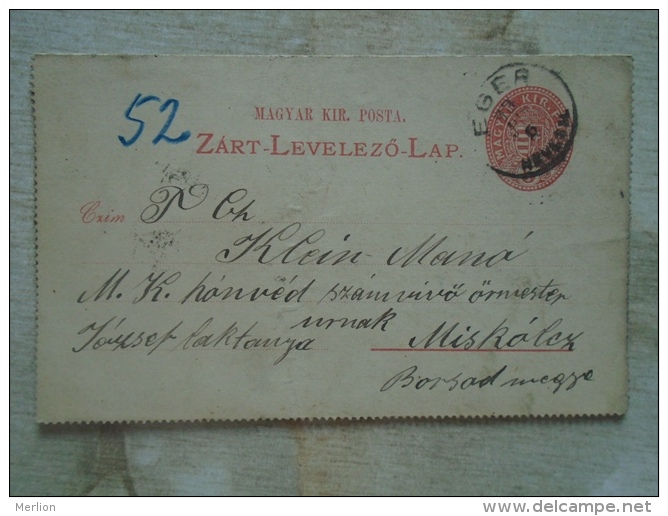 52
MAGYAR KIR. POSTA.
ZÁRT-LEVELEZŐ-LAP.
EGER
MAGY. KIR.
Czim T Ch
Klein Manó
M. K. hónvéd számvivő őrmester
urnak
József laktanya Miskólcz
Borsod megye
Merlion
www.delcampe.net